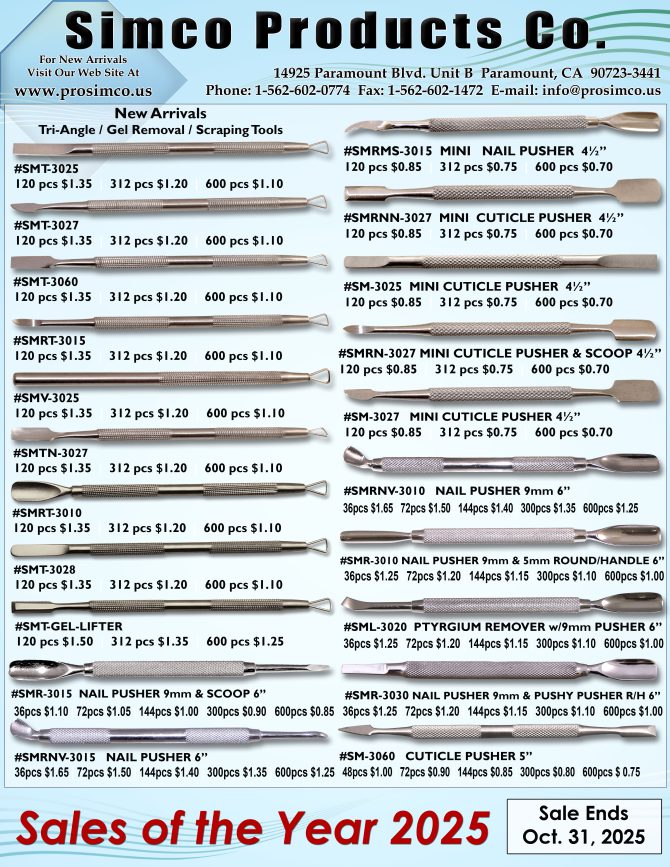 Simco Products Co.
For New Arrivals
Visit Our Web Site At
www.prosimco.us
14925 Paramount Blvd. Unit B Paramount, CA 90723-3441
Phone: 1-562-602-0774 Fax: 1-562-602-1472 E-mail: info@prosimco.us
New Arrivals
Tri-Angle / Gel Removal / Scraping Tools
#SMT-3025
120 pcs $1.35 312 pcs $1.20 600 pcs $1.10
#SMT-3027
120 pcs $1.35 312 pcs $1.20 600 pcs $1.10
#SMT-3060
120 pcs $1.35 312 pcs $1.20 600 pcs $1.10
#SMRT-3015
120 pcs $1.35 312 pcs $1.20 600 pcs $1.10
#SMV-3025
120 pcs $1.35 312 pcs $1.20 600 pcs $1.10
#SMTN-3027
120 pcs $1.35 312 pcs $1.20 600 pcs $1.10
#SMRT-3010
120 pcs $1.35 312 pcs $1.20 600 pcs $1.10
#SMT-3028
120 pcs $1.35 312 pcs $1.20 600 pcs $1.10
#SMT-GEL-LIFTER
120 pcs $1.50 312 pcs $1.35 600 pcs $1.25
#SMR-3015 NAIL PUSHER 9mm & SCOOP 6”
36pcs $1.10 72pcs $1.05 144pcs $1.00 300pcs $0.90 600pcs $0.85
#SMRNV-3015 NAIL PUSHER 6”
36pcs $1.65 72pcs $1.50 144pcs $1.40 300pcs $1.35 600pcs $1.25
#SMRMS-3015 MINI NAIL PUSHER 4½”
120 pc $0.85 312 pc $0.75 600 pc $0.70
#SMRNN-3027 MINI CUTICLE PUSHER 4½”
120 pc $0.85 312 pc $0.75 600 pc $0.70
#SM-3025 MINI CUTICLE PUSHER 4½”
120 pc $0.85 312 pc $0.75 600 pc $0.70
#SMRN-3027 MINI CUTICLE PUSHER & SCOOP 4½”
120 pc $0.85 312 pc $0.75 600 pc $0.70
#SM-3027 MINI CUTICLE PUSHER 4½”
120 pc $0.85 312 pc $0.75 600 pc $0.70
#SMRNV-3010 NAIL PUSHER 9mm 6”
36pcs $1.65 72pcs $1.50 144pcs $1.40 300pcs $1.35 600pcs $1.25
#SMR-3010 NAIL PUSHER 9mm & 5mm ROUND/HANDLE 6”
36pcs $1.25 72pcs $1.20 144pcs $1.15 300pcs $1.10 600pcs $1.00
#SML-3020 PTYRGIUM REMOVER w/9mm PUSHER 6”
36pcs $1.25 72pcs $1.20 144pcs $1.15 300pcs $1.10 600pcs $1.00
#SMR-3030 NAIL PUSHER 9mm & PUSHY PUSHER R/H 6”
36pcs $1.25 72pcs $1.20 144pcs $1.15 300pcs $1.10 600pcs $1.00
#SM-3060 CUTICLE PUSHER 5”
48pcs $1.00 72pcs $0.90 144pcs $0.85 300pcs $0.80 600pcs $ 0.75
Sales of the Year 2025
Sale Ends
Oct. 31, 2025